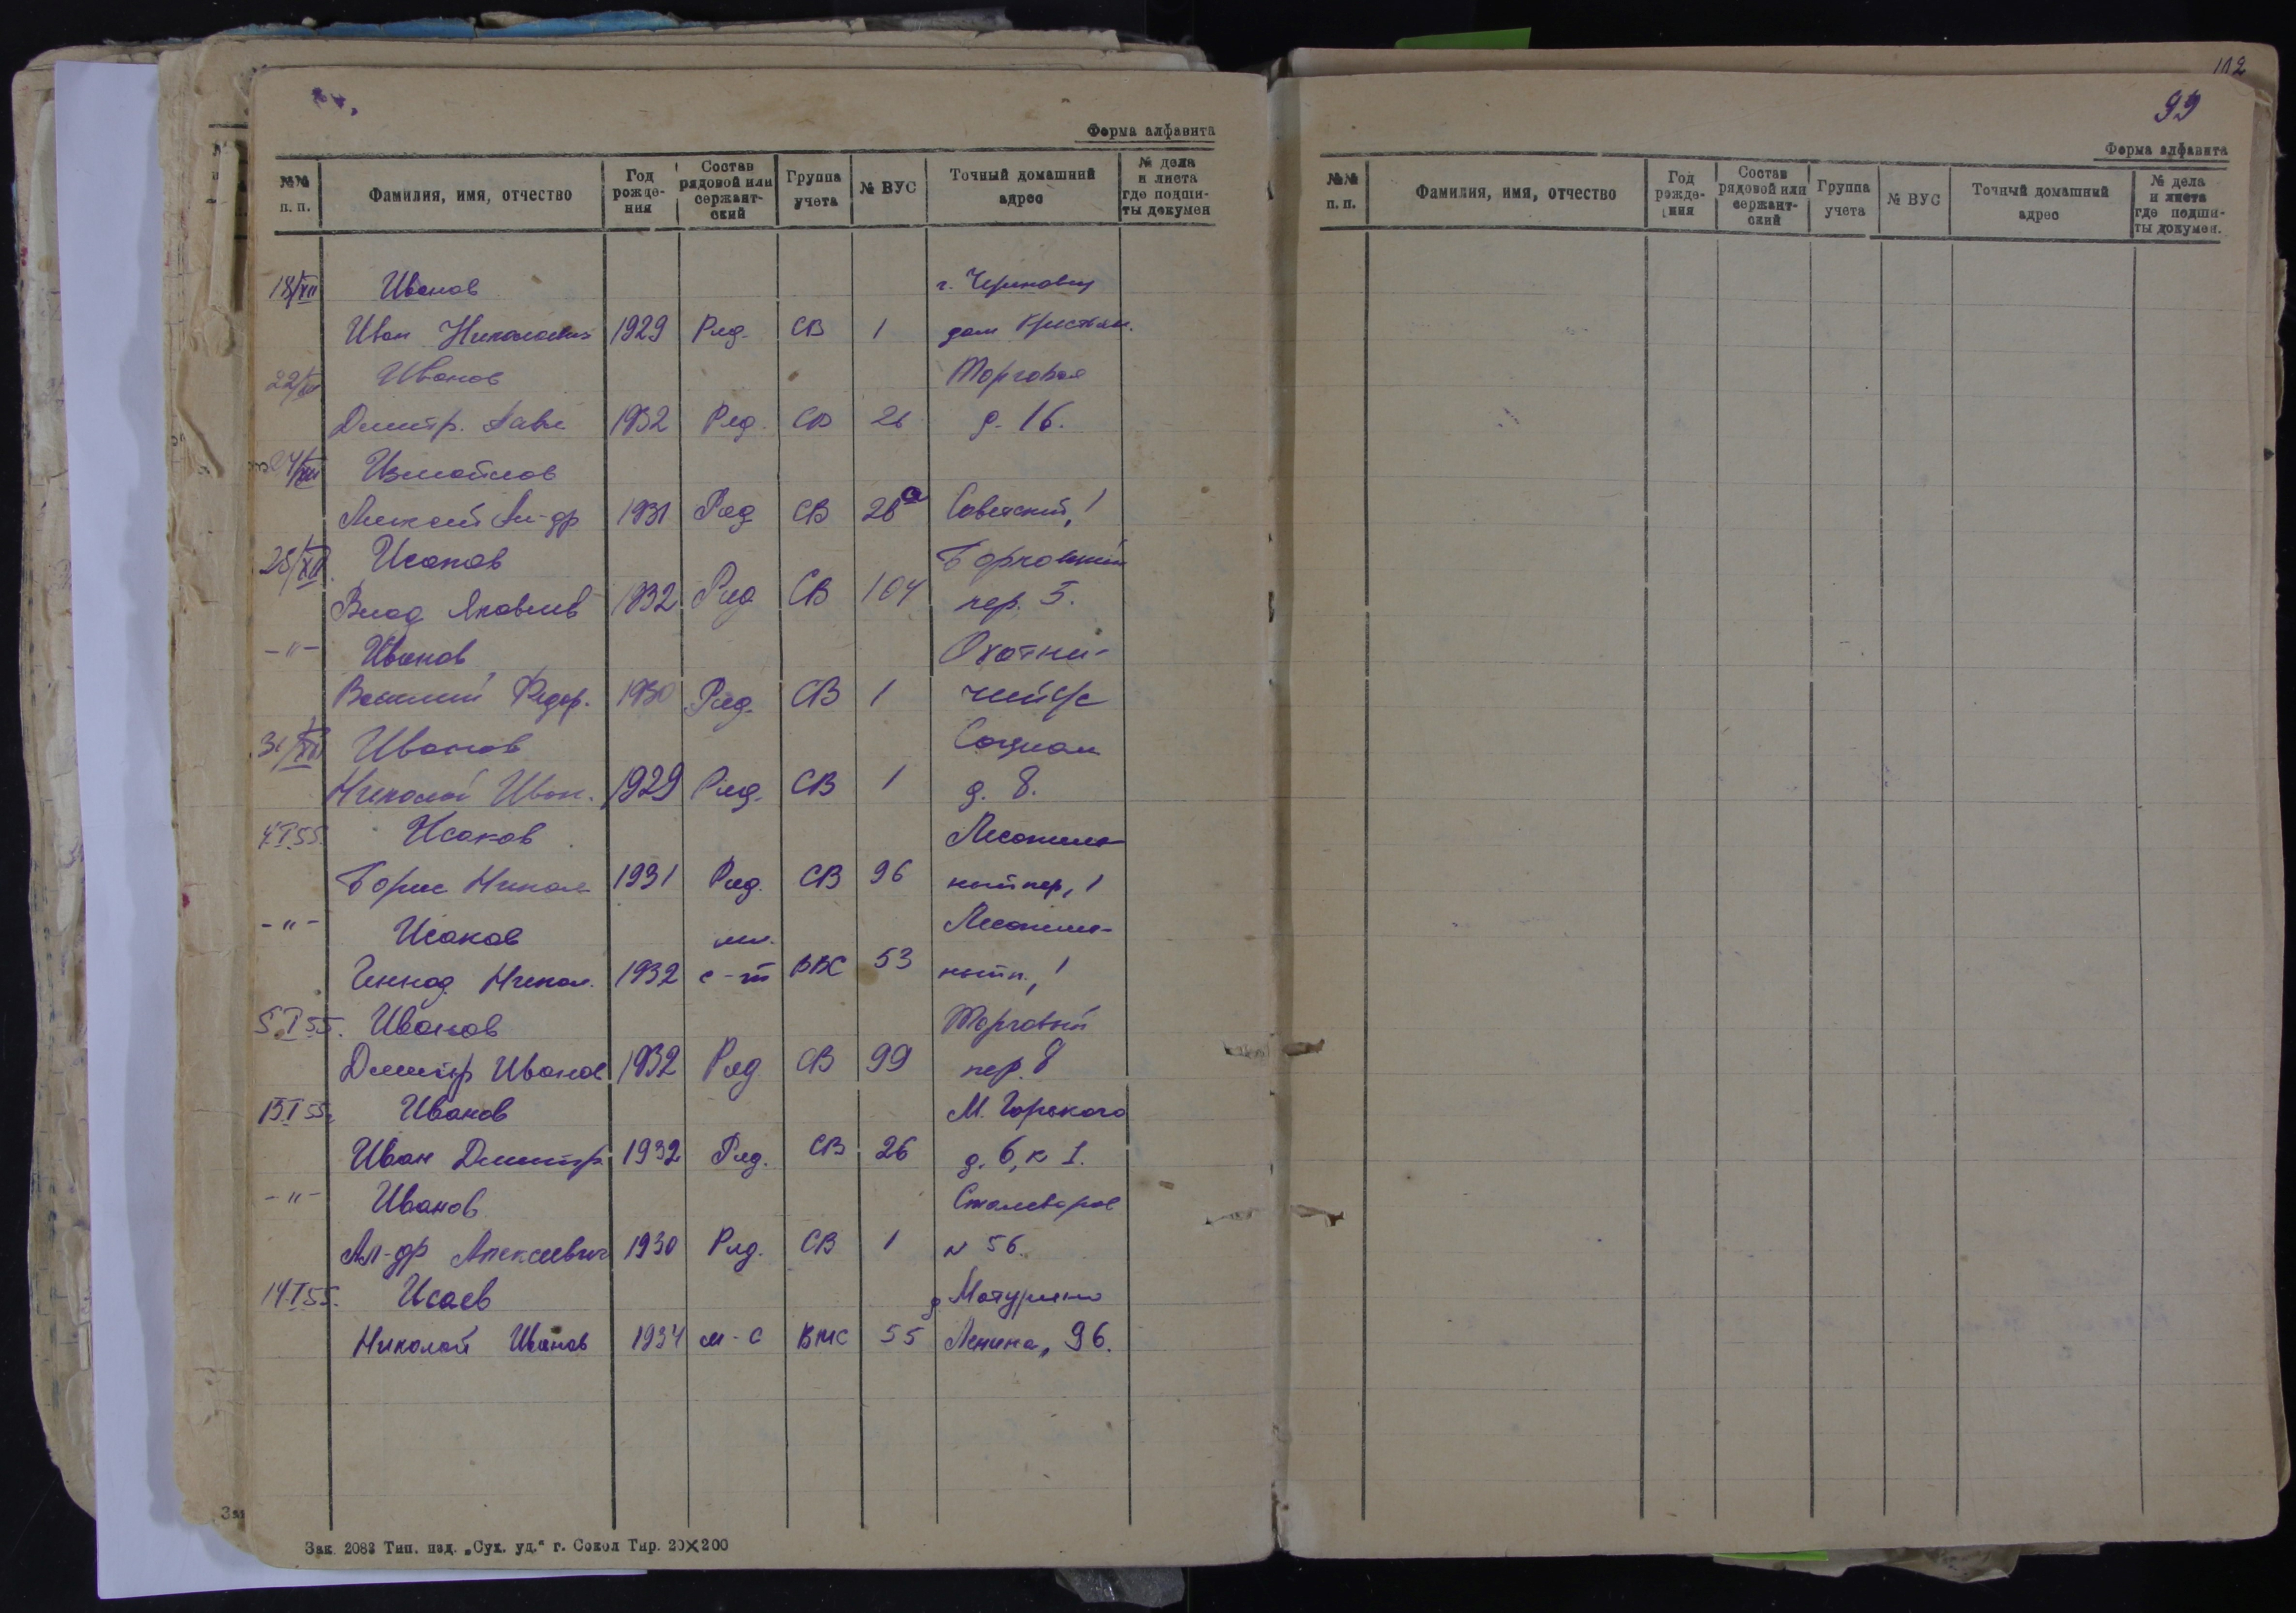 Форма алфавита
№№ п. п. Фамилия, имя, отчество Год рожде-ния Состав рядовой или сержант-ский Группа учета № ВУС Точный домашний адрес № дела и листа где подши-ты докумен
18/XII Иванов г. Черновцы
Иван Николаевич 1929 Ряд. СВ 1 дом
22/XII Иванов Торговая
Дмитр. 1932 Ряд. СВ 26 д. 16.
24/XII Измайлов
Алексей Ал-др 1931 Ряд СВ 26а Советский, 1
25/XII Исаков
Влад Яковлев 1932 Ряд СВ 104 пер. 5.
-"- Иванов Охотни-
Василий Федор. 1930 Ряд. СВ 1 чий с/с
31/XII Иванов Социал
Николай Иван. 1929 Ряд. СВ 1 д. 8.
4.I.55. Исаков
Борис Никол 1931 Ряд. СВ 96 ный пер, 1
-"- Исаков мл.
Геннад Никол. 1932 с-т ВВС 53 1
5.I 55. Иванов Торговый
Дмитр Иванов 1932 Ряд СВ 99 пер. 8
13.I 55 Иванов М. Горького
Иван Дмитр 1932 Ряд. СВ 26 д. 6, к 1.
-"- Иванов Сталеваров
Ал-др Алексеевич 1930 Ряд. СВ 1 № 56.
14.I 55. Исаев д Матурино
Николай Иванов 1934 м-с ВМС 55 Ленина, 96.
Зак. 2083 Тип. изд. „Сух. уд.“ г. Сокол Тир. 20×200
112
99
Форма алфавита
№№ п. п. Фамилия, имя, отчество Год рожде-ния Состав рядовой или сержант-ский Группа учета № ВУС Точный домашний адрес № дела и листа где подши-ты докумен.